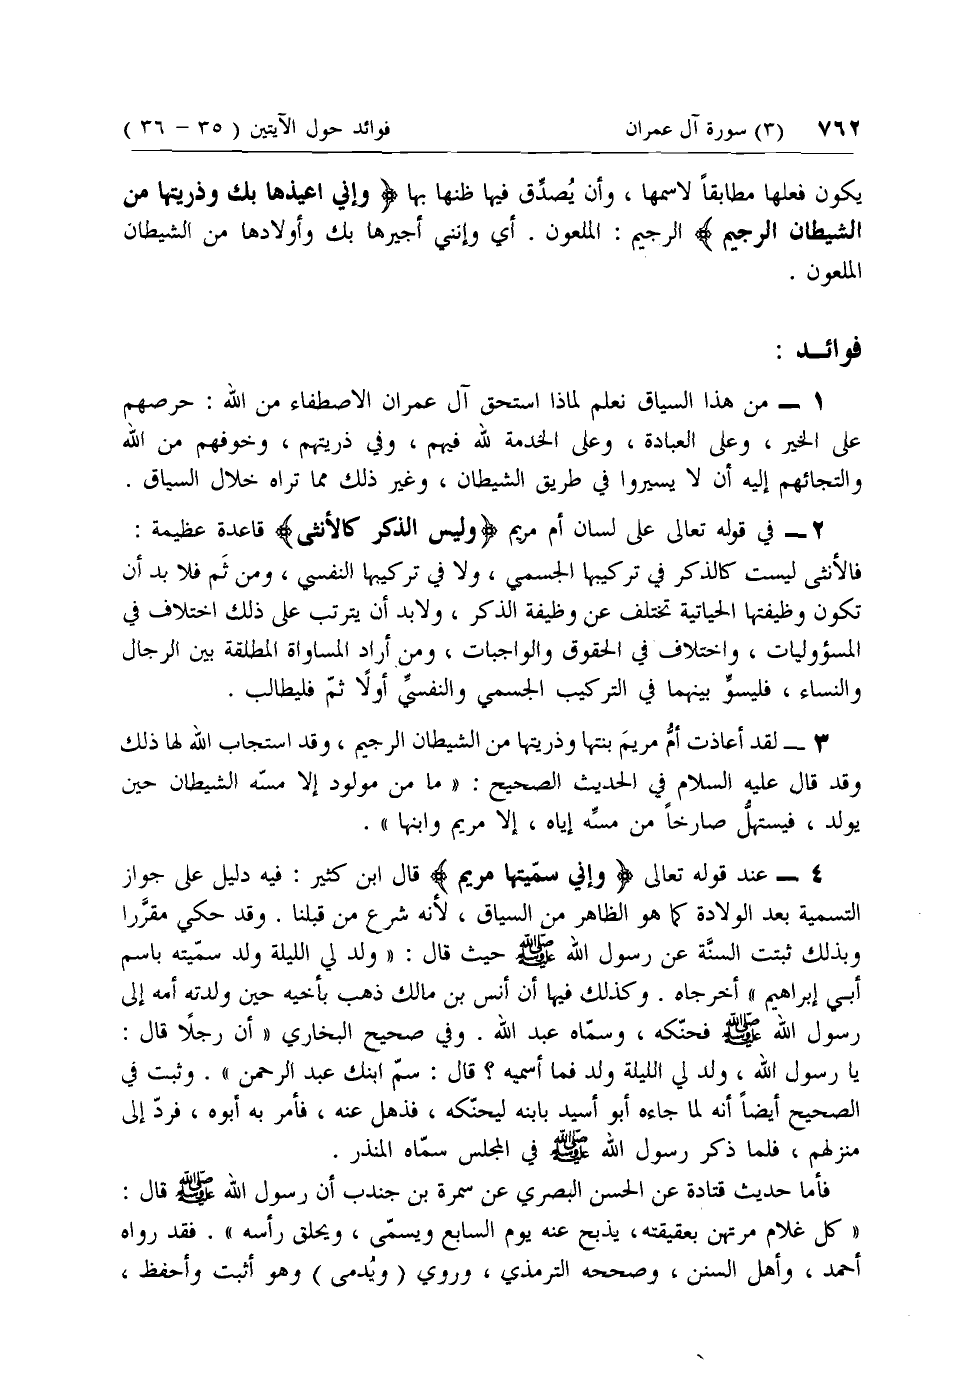 ٧٦٢ (٣) سورة آل عمران فوائد حول الآيتين ( ٣٥ – ٣٦ )
يكون فعلها مطابقاً لاسمها ، وأن يُصدِّق فيها ظنها بها ﴿ وإني اعيذها بك وذريتها من
الشيطان الرجيم ﴾ الرجيم : الملعون . أي وإنني أجيرها بك وأولادها من الشيطان
الملعون .
فوائـد :
١ ــ من هذا السياق نعلم لماذا استحق آل عمران الاصطفاء من الله : حرصهم
على الخير ، وعلى العبادة ، وعلى الخدمة لله فيهم ، وفي ذريتهم ، وخوفهم من الله
والتجائهم إليه أن لا يسيروا في طريق الشيطان ، وغير ذلك مما تراه خلال السياق .
٢ ــ في قوله تعالى على لسان أم مريم ﴿وليس الذكر كالأنثى﴾ قاعدة عظيمة :
فالأنثى ليست كالذكر في تركيبها الجسمي ، ولا في تركيبها النفسي ، ومن ثَم فلا بد أن
تكون وظيفتها الحياتية تختلف عن وظيفة الذكر ، ولابد أن يترتب على ذلك اختلاف في
المسؤوليات ، واختلاف في الحقوق والواجبات ، ومن أراد المساواة المطلقة بين الرجال
والنساء ، فليسوِّ بينهما في التركيب الجسمي والنفسيِّ أولًا ثمّ فليطالب .
٣ ــ لقد أعاذت أمُّ مريمَ بنتها وذريتها من الشيطان الرجيم ، وقد استجاب الله لها ذلك
وقد قال عليه السلام في الحديث الصحيح : « ما من مولود إلا مسّه الشيطان حين
يولد ، فيستهلُّ صارخاً من مسِّه إياه ، إلا مريم وابنها » .
٤ ــ عند قوله تعالى ﴿ وإني سمّيتها مريم ﴾ قال ابن كثير : فيه دليل على جواز
التسمية بعد الولادة كما هو الظاهر من السياق ، لأنه شرع من قبلنا . وقد حكي مقرَّرا
وبذلك ثبتت السنَّة عن رسول الله ﷺ حيث قال : « ولد لي الليلة ولد سمّيته باسم
أبي إبراهيم » أخرجاه . وكذلك فيها أن أنس بن مالك ذهب بأخيه حين ولدته أمه إلى
رسول الله ﷺ فحنّكه ، وسمّاه عبد الله . وفي صحيح البخاري « أن رجلًا قال :
يا رسول الله ، ولد لي الليلة ولد فما أسميه ؟ قال : سمّ ابنك عبد الرحمن » . وثبت في
الصحيح أيضاً أنه لما جاءه أبو أسيد بابنه ليحنّكه ، فذهل عنه ، فأمر به أبوه ، فردّ إلى
منزلهم ، فلما ذكر رسول الله ﷺ في المجلس سمّاه المنذر .
فأما حديث قتادة عن الحسن البصري عن سمرة بن جندب أن رسول الله ﷺ قال :
« كل غلام مرتهن بعقيقته، يذبح عنه يوم السابع ويسمّى ، ويحلق رأسه » . فقد رواه
أحمد ، وأهل السنن ، وصححه الترمذي ، وروي ( ويُدمى ) وهو أثبت وأحفظ ،